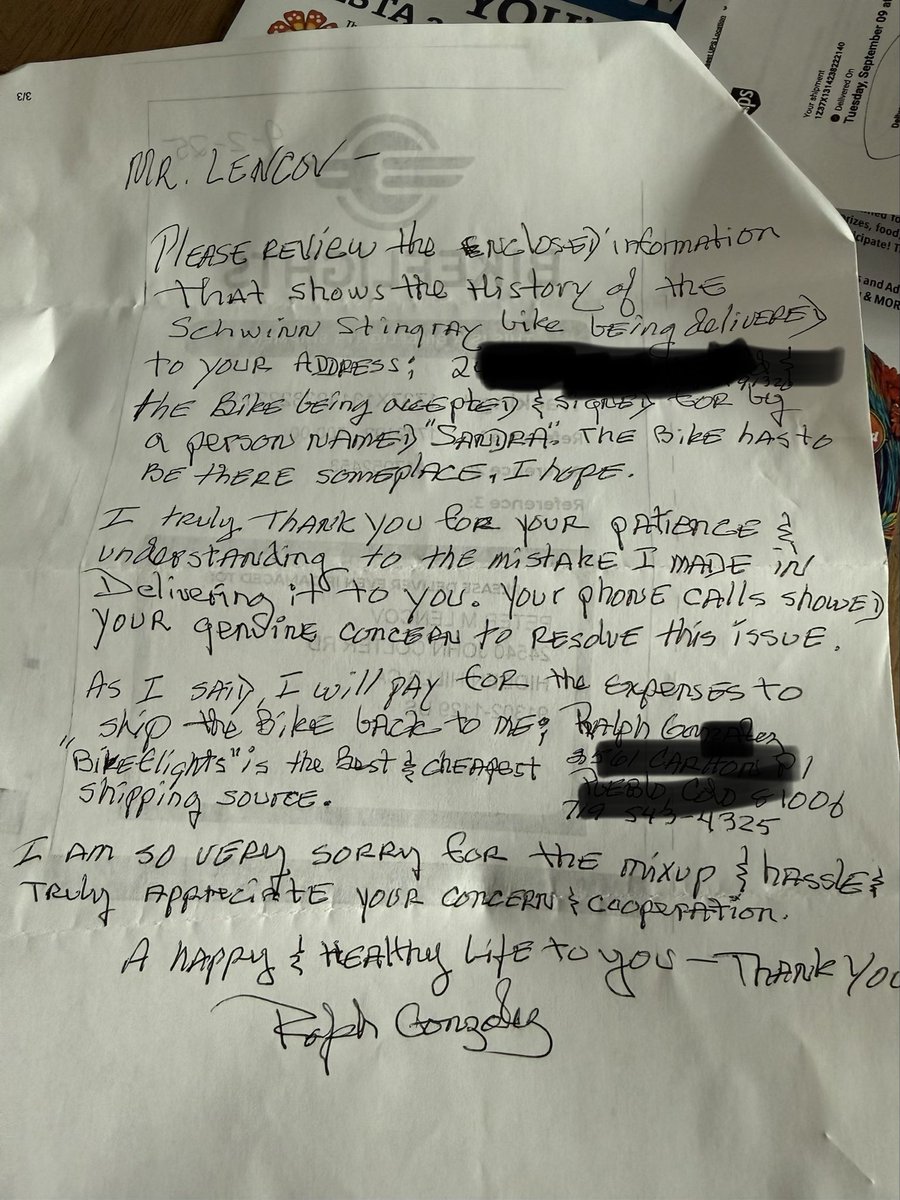 3/3
MR. LENCOV —
PLEASE REVIEW the ENCLOSED information
THAT shows the History of the
Schwinn Stingray bike being delivered
to your Address; 2
the Bike being accepted & signed for by
a person named "SANDRA". The Bike has to
BE THERE SOMEPLACE, I hope.
I truly THANK YOU for your patience &
understanding to the mistake I made in
Delivering it to you. Your phone calls showed
your genuine concern to resolve this issue.
As I said, I will pay for the expenses to
ship the Bike back to me; Ralph
"Bikeflights" is the Best & cheapest
shipping source.
543-4325
I am so very sorry for the mixup & hassle &
Truly Appreciate your concern & cooperation.
A happy & Healthy Life to you — Thank You
Ralph Gonzalez
Your shipment
1237X1314238222140
Delivered On
Tuesday, September 09 at
ups
YOU'
& MOR